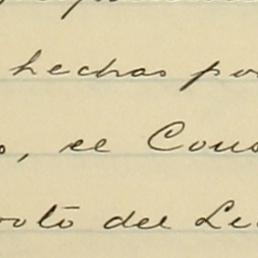 hechas po
, el Cons
votó del Le